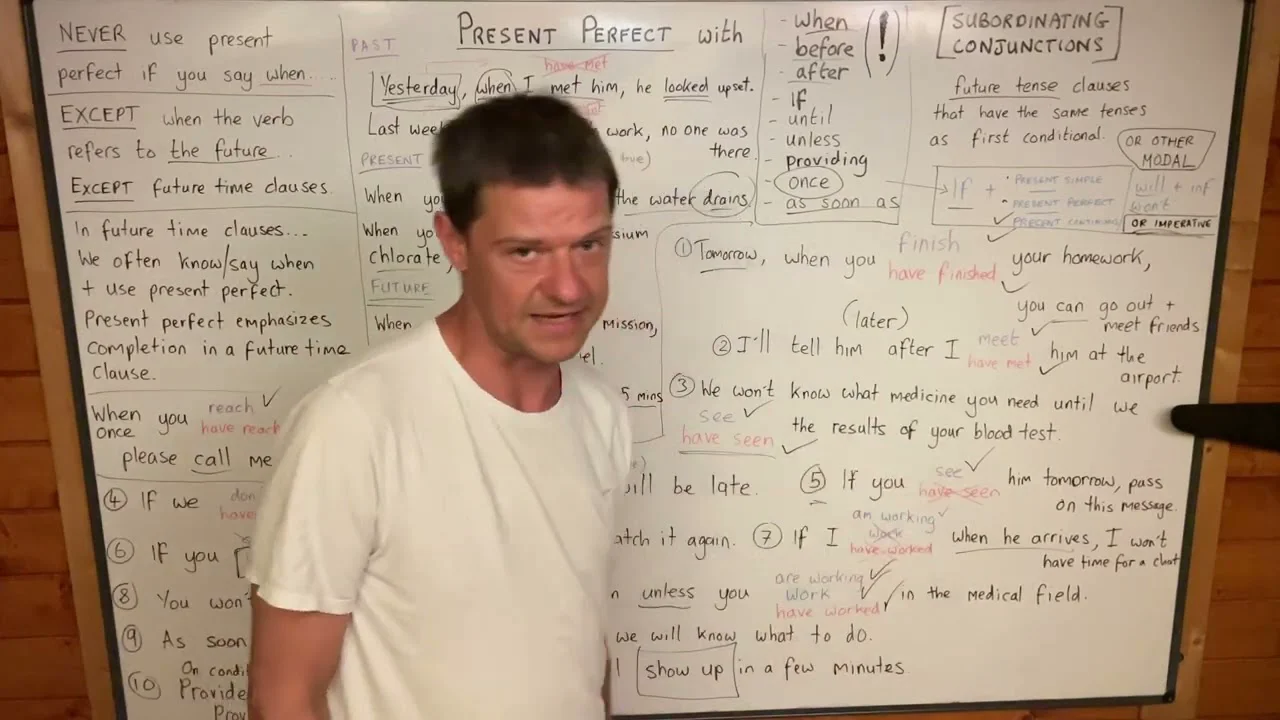 NEVER use present
perfect if you say when....
EXCEPT when the verb
refers to the future..
EXCEPT future time clauses.
In future time clauses...
We often know/say when
+ use present perfect.
Present perfect emphasizes
completion in a future time
clause.
When you reach
once have reach
please call me
④ If we don
have
⑥ If you
⑧ You won'
⑨ As soon
On condi
⑩ Provide
Prov
PRESENT PERFECT with
PAST
have met
Yesterday, when I met him, he looked upset.
Last wee work, no one was
there.
PRESENT true)
When you the water drains.
When yo sium
chlorate,
FUTURE
When mission,
el.
5 mins
- when
- before
- after
- If
- until
- unless
- providing
- once
- as soon as
(!)
[SUBORDINATING
CONJUNCTIONS]
future tense clauses
that have the same tenses
as first conditional.
OR OTHER
MODAL
If + • PRESENT SIMPLE
• PRESENT PERFECT
PRESENT CONTINUOUS
will + inf
won't
OR IMPERATIVE
① Tomorrow, when you finish your homework,
have finished
you can go out +
meet friends
(later)
② I'll tell him after I meet him at the
have met
airport.
③ We won't know what medicine you need until we
see the results of your blood test.
have seen
will be late.
⑤ If you see him tomorrow, pass
have seen on this message.
atch it again.
am working
⑦ If I work when he arrives, I won't
have worked have time for a chat
are working
n unless you work in the medical field.
have worked
we will know what to do.
show up in a few minutes